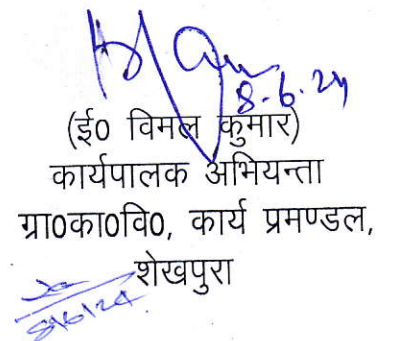 8-6-24
(ई0 विमल कुमार)
कार्यपालक अभियन्ता
ग्रा0का0वि0, कार्य प्रमण्डल,
शेखपुरा
8/6/24